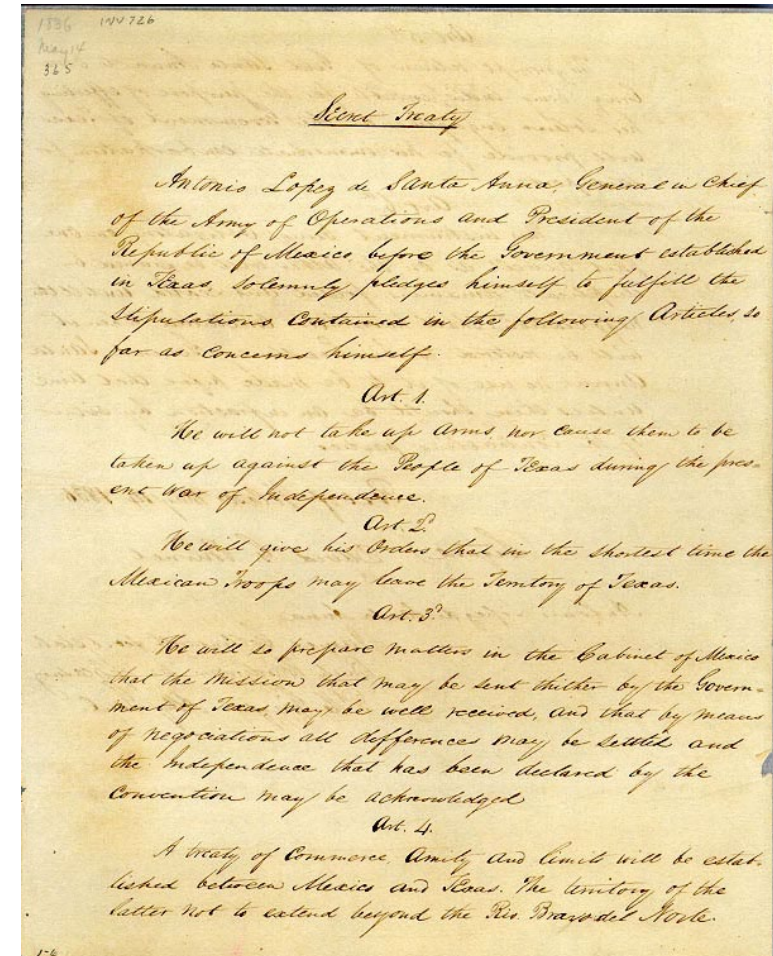 1836 INV 726
May 14
365
Secret Treaty
Antonio Lopez de Santa Anna, General in Chief
of the Army of Operations and President of the
Republic of Mexico, before the Government established
in Texas, solemnly pledges himself to fulfill the
Stipulations Contained in the following Articles, so
far as concerns himself.
Art. 1.
He will not take up arms, nor cause them to be
taken up against the People of Texas during the pres-
ent War of Independence.
Art. 2d
He will give his Orders that in the shortest time the
Mexican Troops may leave the Territory of Texas.
Art. 3d
He will so prepare matters in the Cabinet of Mexico
that the Mission that may be sent thither by the Govern-
ment of Texas, may be well received, and that by means
of negociations all differences may be settled and
the Independence that has been declared by the
Convention may be acknowledged
Art. 4.
A treaty of Commerce, Amity and limits will be estab-
lished between Mexico and Texas. The territory of the
latter not to extend beyond the Rio. Bravo del Norte.